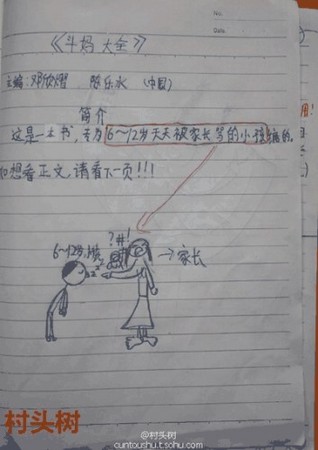 No:
Date:
《斗妈 大全》
主编:邓欣燿 憨乐水 (中国)
简介
这是一本书,专为6~12岁天天被家长骂的小孩编的。
如想看正文,请看下一页!!!
?#!
6~12岁小孩
→家长
村头树
@村头树
cuntoushu.t.sohu.com